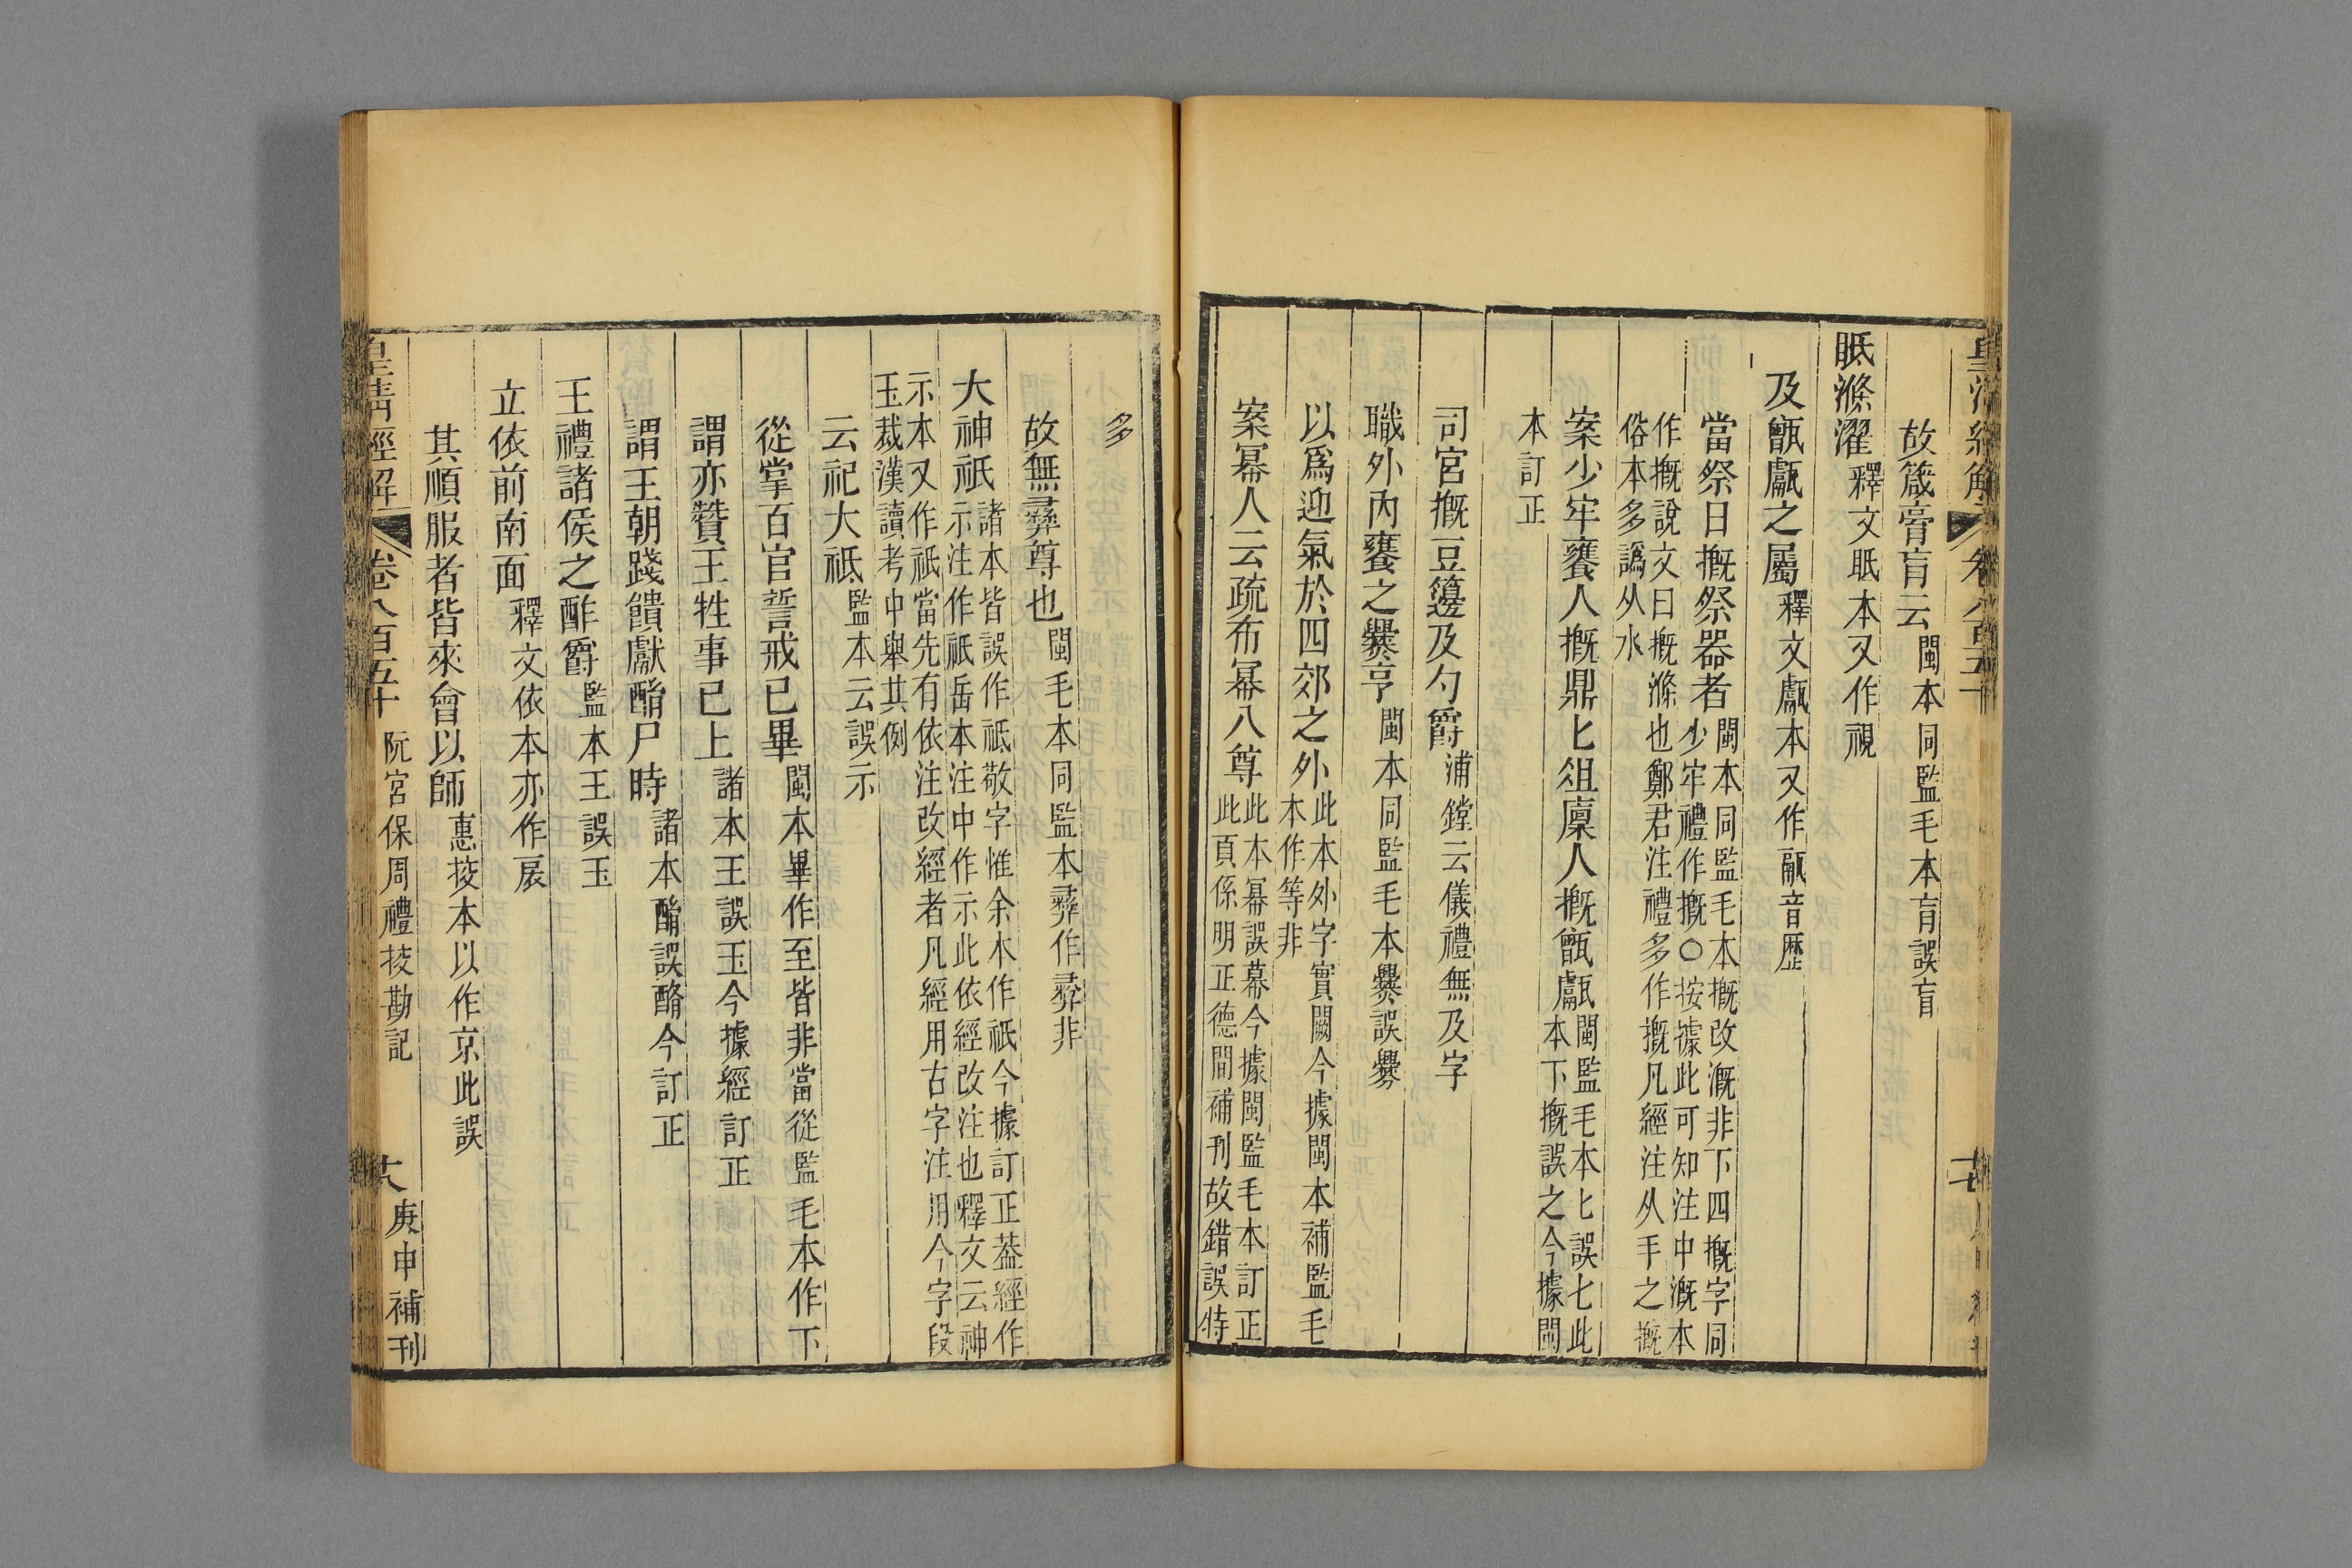 故箴膏肓云閩本同監毛本肓誤盲
眡滌濯釋文眡本又作視
及甑甗之屬釋文甗本又作甗音歴
當祭日摡祭器者閩本同監毛本摡改溉非下四摡字同
少牢禮作摡○按據此可知注中溉本
作摡說文曰摡滌也鄭君注禮多作摡凡經注从手之摡
俗本多譌从水
案少牢饔人摡鼎匕俎廩人摡甑甗閩監毛本匕誤七此
本下摡誤之今據閩
本訂正
司宮摡豆籩及勺爵浦鏜云儀禮無及字
職外內饔之爨亨閩本同監毛本爨誤爨
以爲迎氣於四郊之外此本外字實闕今據閩本補監毛
本作等非
案冪人云疏布冪八尊此本冪誤幕今據閩監毛本訂正
此頁係明正德間補刊故錯誤特
多
故無彞尊也閩毛本同監本彞作彛非
大神祇諸本皆誤作祗敬字惟余本作祇今據訂正葢經作
示注作祇岳本注中作示此依經改注也釋文云神
示本又作祇當先有依注改經者凡經用古字注用今字段
玉裁漢讀考中舉其例
云祀大祗監本云誤示
從掌百官誓戒已畢閩本畢作至皆非當從監毛本作下
謂亦贊王牲事已上諸本王誤玉今據經訂正
謂王朝踐饋獻酳尸時諸本酳誤酳今訂正
王禮諸侯之酢爵監本王誤玉
立依前南面釋文依本亦作扆
其順服者皆來會以師惠挍本以作京此誤
皇清經解 卷八百五十 阮宮保周禮挍勘記 六 庚申補刊